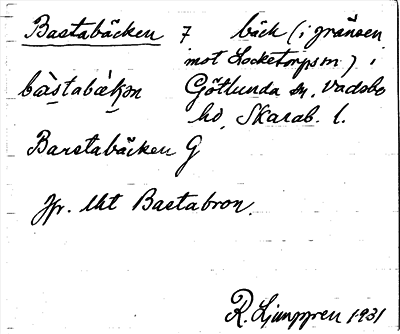 Bastabäcken 7 bäck (i gränsen
mot Locketorpsm) i
bàstabàkən Götlunda sn, Vadsbo
hd, Skarab. l.
Barstabäcken G
Jfr. Utt Bastabron.
R. Ljunggren 1931